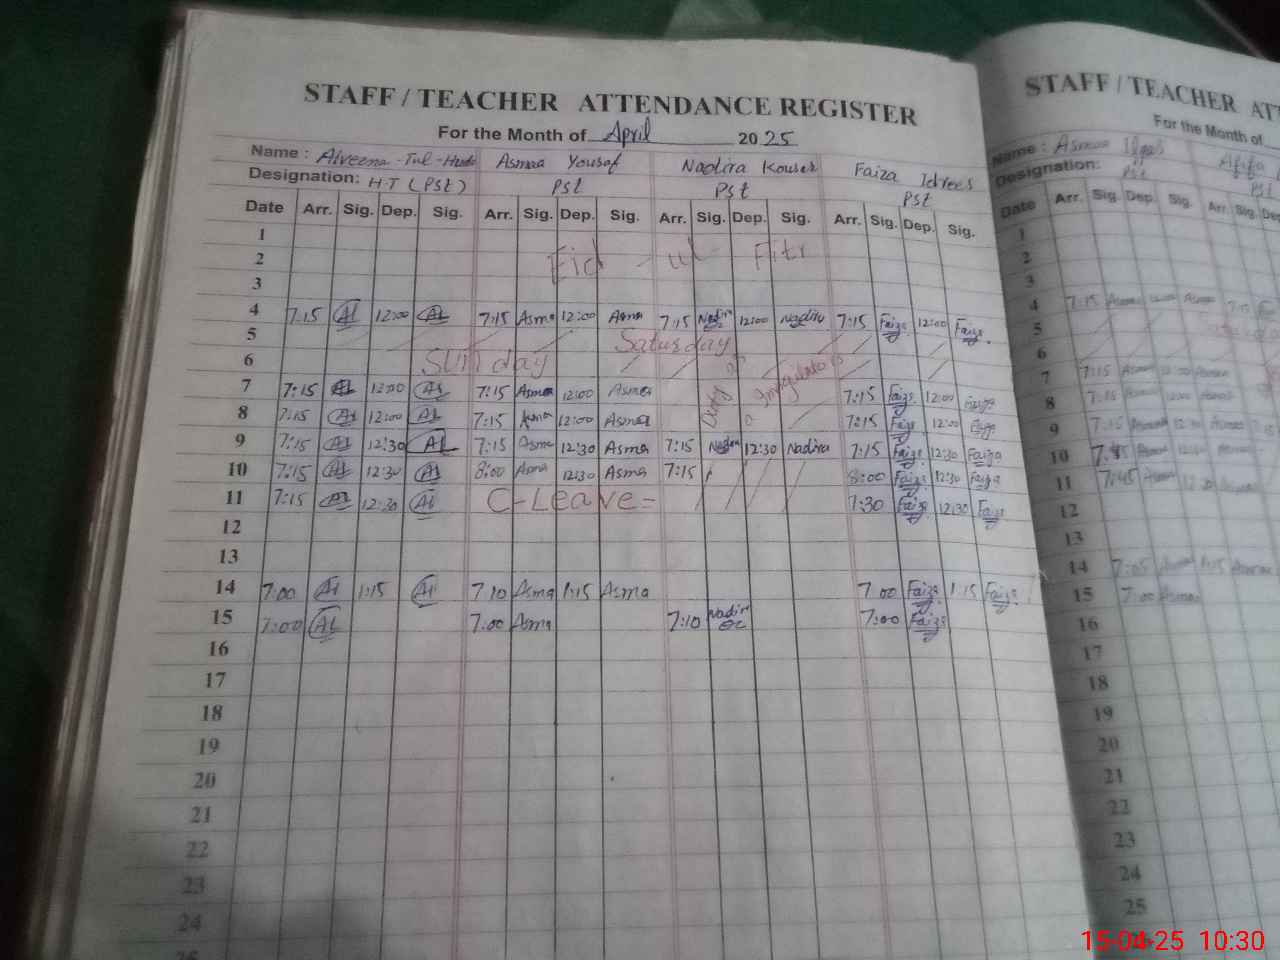 STAFF / TEACHER ATTENDANCE REGISTER
For the Month of April 2025
Name : Alveena-Tul-Huda Asmaa Yousaf Nadira Kouser Faiza Idrees
Designation: H.T (Pst) Pst Pst Pst
Date Arr. Sig. Dep. Sig. Arr. Sig. Dep. Sig. Arr. Sig. Dep. Sig. Arr. Sig. Dep. Sig.
1
2 Eid - ul Fitr
3
4 7:15 Al 12:00 Al 7:15 Asma 12:00 Asma 7:15 Nadira 12:00 Nadira 7:15 Faiza 12:00 Faiza
5 Saturday
6 Sunday
7 7:15 Al 12:00 Al 7:15 Asma 12:00 Asma Duty as 7:15 Faiza 12:00 Faiza
8 7:15 Al 12:00 Al 7:15 Asma 12:00 Asma a Invigilator 7:15 Faiza 12:00 Faiza
9 7:15 Al 12:30 Al 7:15 Asma 12:30 Asma 7:15 Nadira 12:30 Nadira 7:15 Faiza 12:30 Faiza
10 7:15 Al 12:30 Al 8:00 Asma 12:30 Asma 7:15 8:00 Faiza 12:30 Faiza
11 7:15 Al 12:30 Al C-Leave= 7:30 Faiza 12:30 Faiza
12
13
14 7:00 Al 1:15 Al 7:10 Asma 1:15 Asma 7:00 Faiza 1:15 Faiza
15 7:00 Al 7:00 Asma 7:10 Nadira 7:00 Faiza
16
17
18
19
20
21
22
23
24
STAFF / TEACHER ATT
For the Month of
Name : Asmaa
Designation: Pst Pst
Date Arr. Sig. Dep. Sig. Arr. Sig.
1
2
3
4 7:15 Asmaa 12:00 Asmaa 7:15
5
6
7 7:15 Asmaa 12:00 Asmaa
8 7:15 Asmaa
9 7:15 Asmaa 12:30 Asmaa 7:15
10 Asmaa 12:30 Asmaa
11 7:45 Asmaa 12:30 Asmaa
12
13
14 7:05 Asmaa 1:15 Asmaa
15 7:00 Asmaa
16
17
18
19
20
21
22
23
24
25
15-04-25 10:30